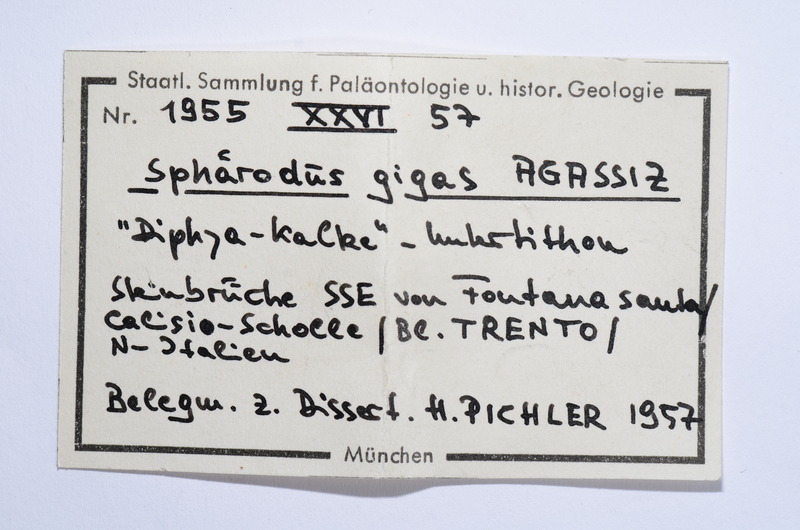 Staatl. Sammlung f. Paläontologie u. histor. Geologie
Nr. 1955 XXVI 57
Sphärodus gigas AGASSIZ
"Diphya-Kalke" - Untertithon
Steinbrüche SSE von Fontana santa/
Calisio-Scholle / Bl. TRENTO /
N-Italien
Belegm. z. Dissert. H. PICHLER 1957
München